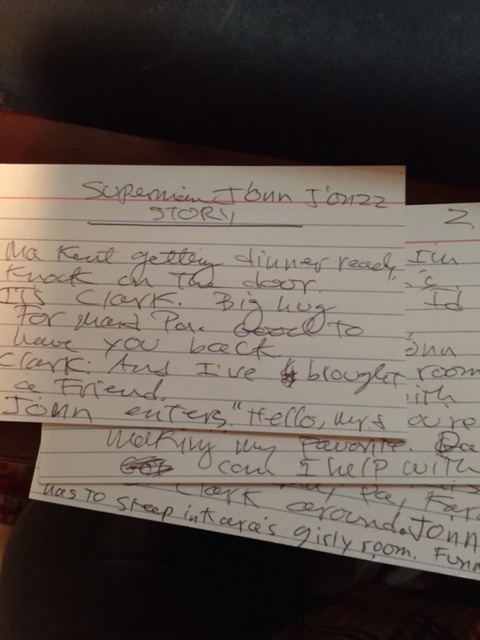 Superman John Jonzz
STORY
Ma Kent getting dinner ready.
Knock on the door.
ITS Clark. Big hug
For Ma and Pa. Good to
have you back
Clark. And I've brought
a Friend.
John enters. "Hello, Mrs
2.
I'm
Id
room
making my favorite.
can I help with
Pa, Kar
Clark around. John
has to sleep in Kara's girly room. Funn